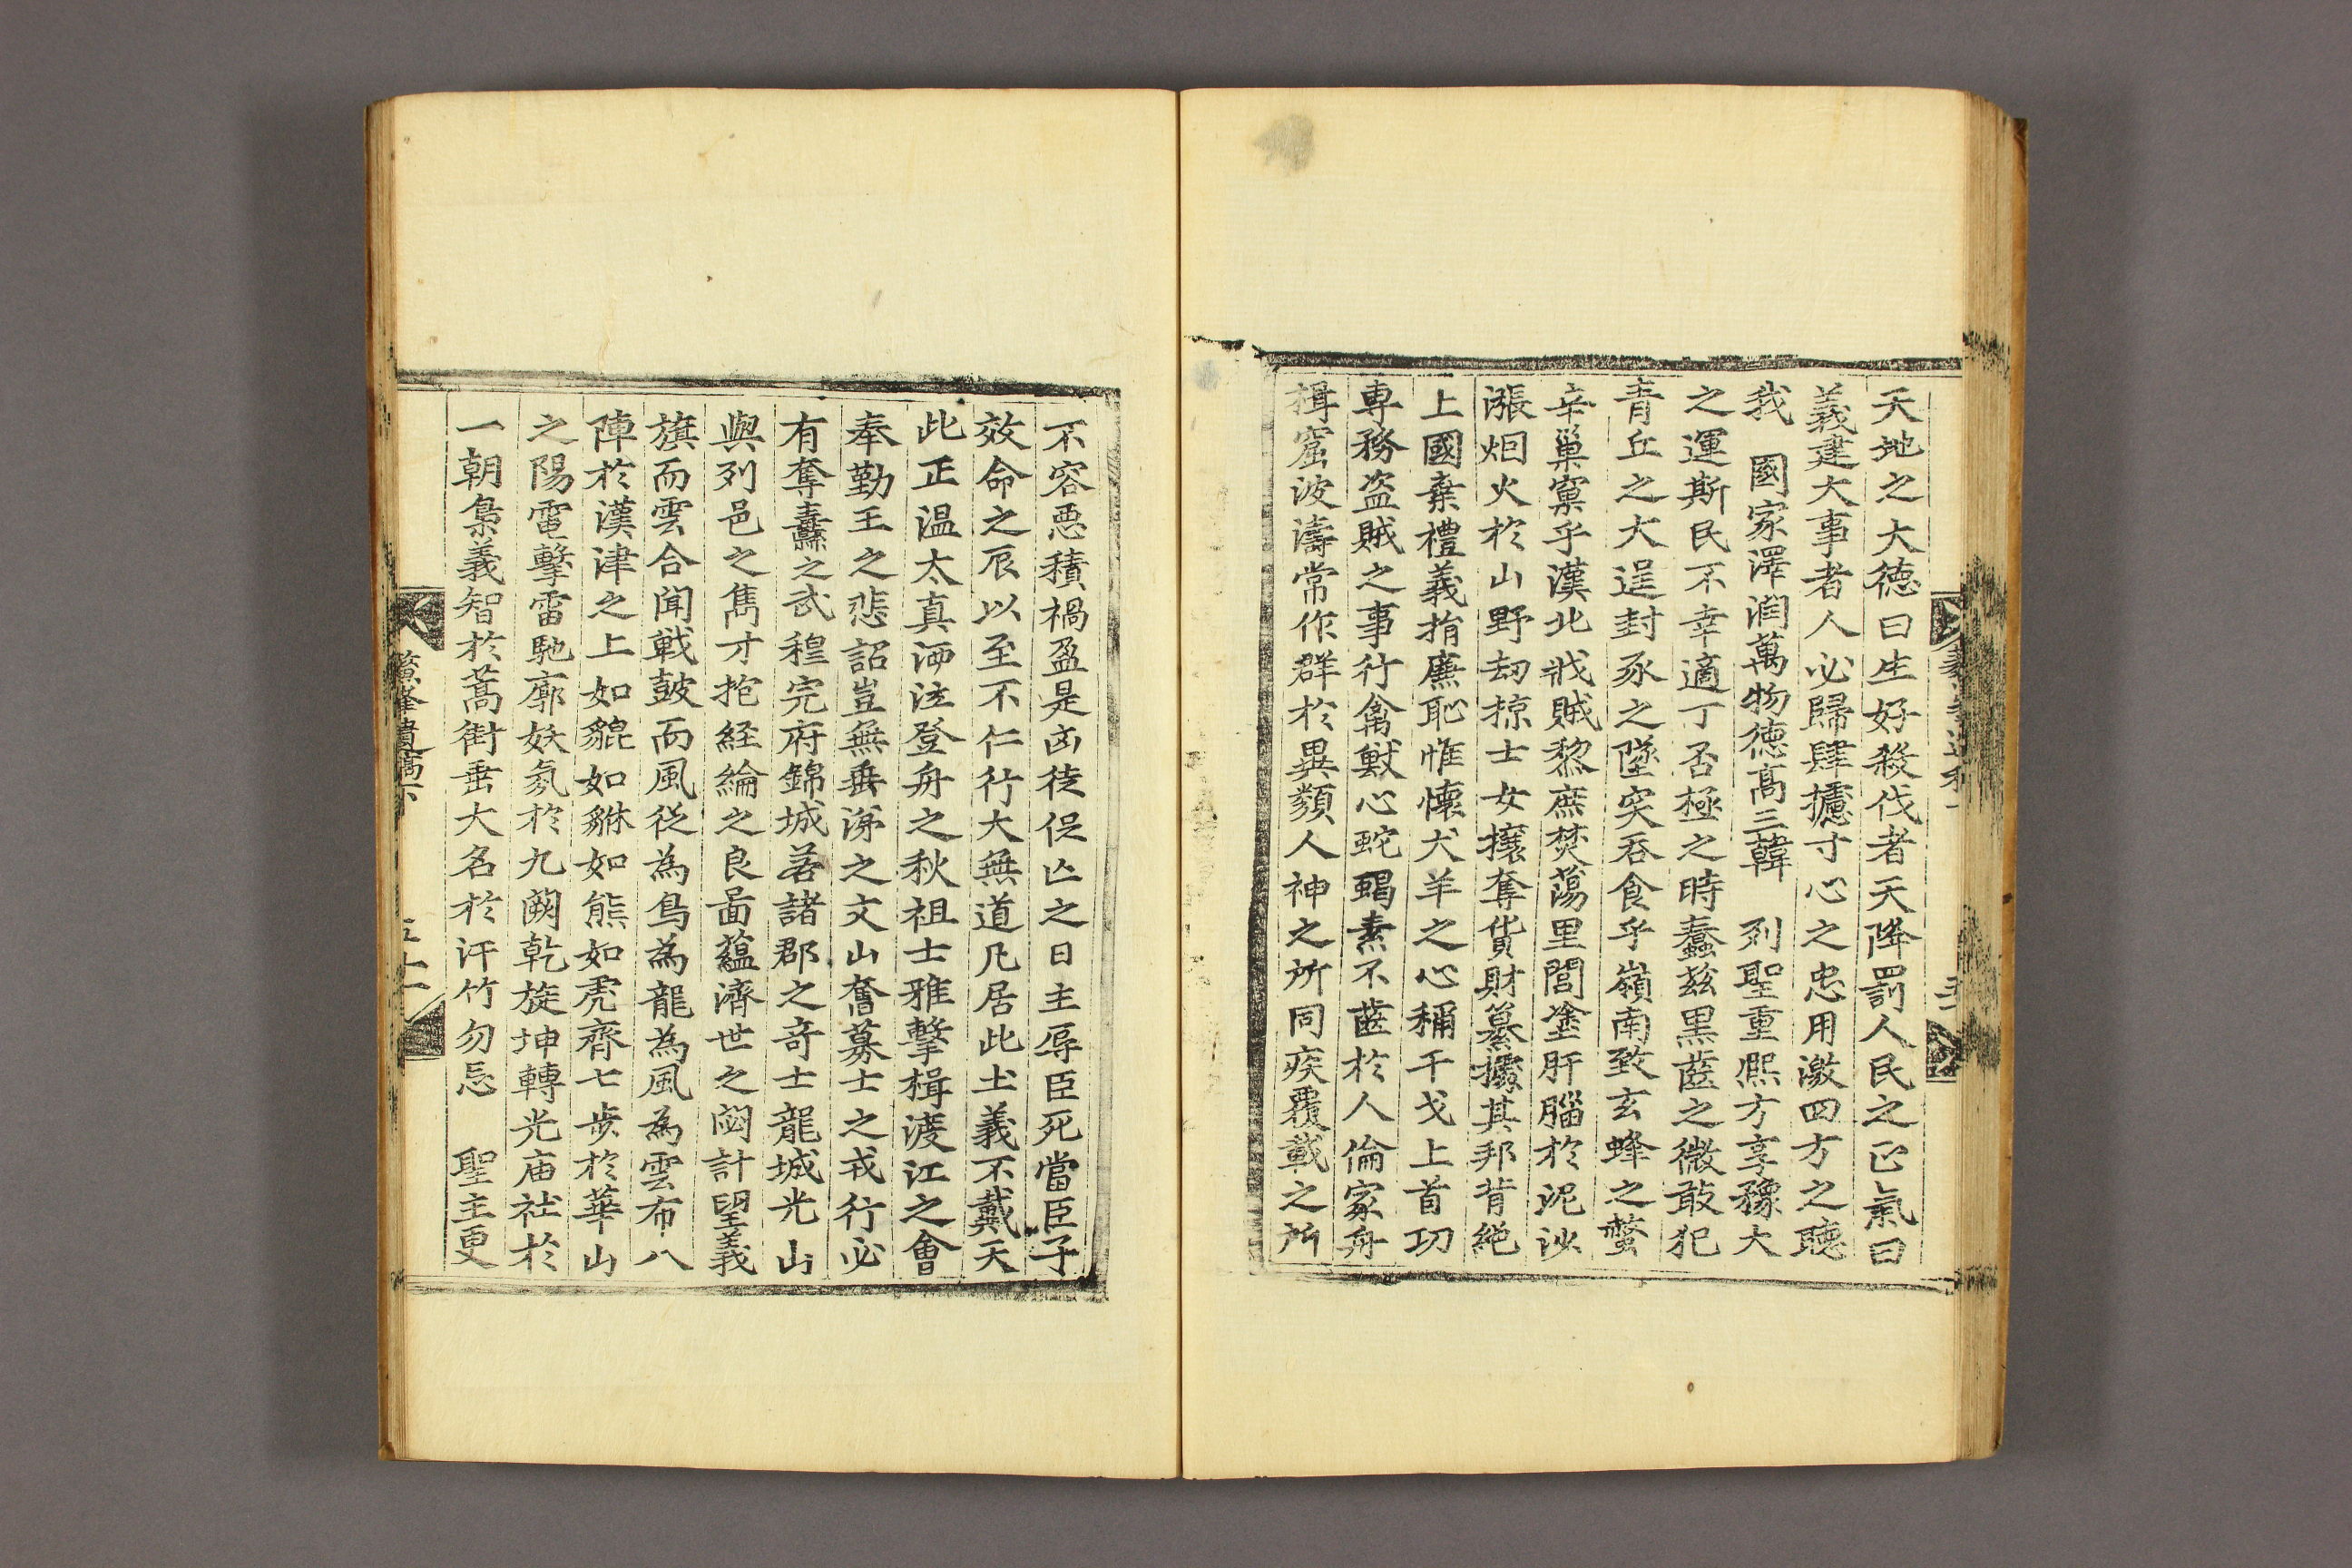 天地之大德曰生好殺伐者天降罰人民之正氣曰
義建大事者人必歸肆攄寸心之忠用激四方之聽
我　國家澤潤萬物德高三韓　列聖重熙方享豫大
之運斯民不幸適丁否極之時蠢玆黑齒之微敢犯
青丘之大逞封豕之墬突呑食乎嶺南致玄蜂之螫
辛巢窠乎漢北戕賊黎庶焚蕩里閭塗肝腦於泥沙
漲烟火於山野刼掠士女攘奪貨財纂撥其邦背絶
上國棄禮義捐廉恥惟懷犬羊之心稱干戈上首功
專務盗賊之事行禽獸心蛇蝎素不齒於人倫家舟
楫窟波濤常作群於異類人神之所同疾覆載之所
不容惡積禍盈是凶徒促亾之日主辱臣死當臣子
效命之辰以至不仁行大無道凡居此土義不戴天
此正温太真洒泣登舟之秋祖士雅擊楫渡江之會
奉勤王之悲詔豈無垂涕之文山奮募士之戎行必
有奪纛之武穆完府錦城若諸郡之奇士龍城光山
與列邑之雋才抱経綸之良畐蘊濟世之閟計望義
旗而雲合聞戰鼓而風從為鳥為龍為風為雲布八
陣於漢津之上如貔如貅如熊如虎齊七步於華山
之陽電擊雷馳廓妖氛於九闕乾旋坤轉光庙社於
一朝梟義智於藁街垂大名於汗竹勿忘　聖主更
遺稿下